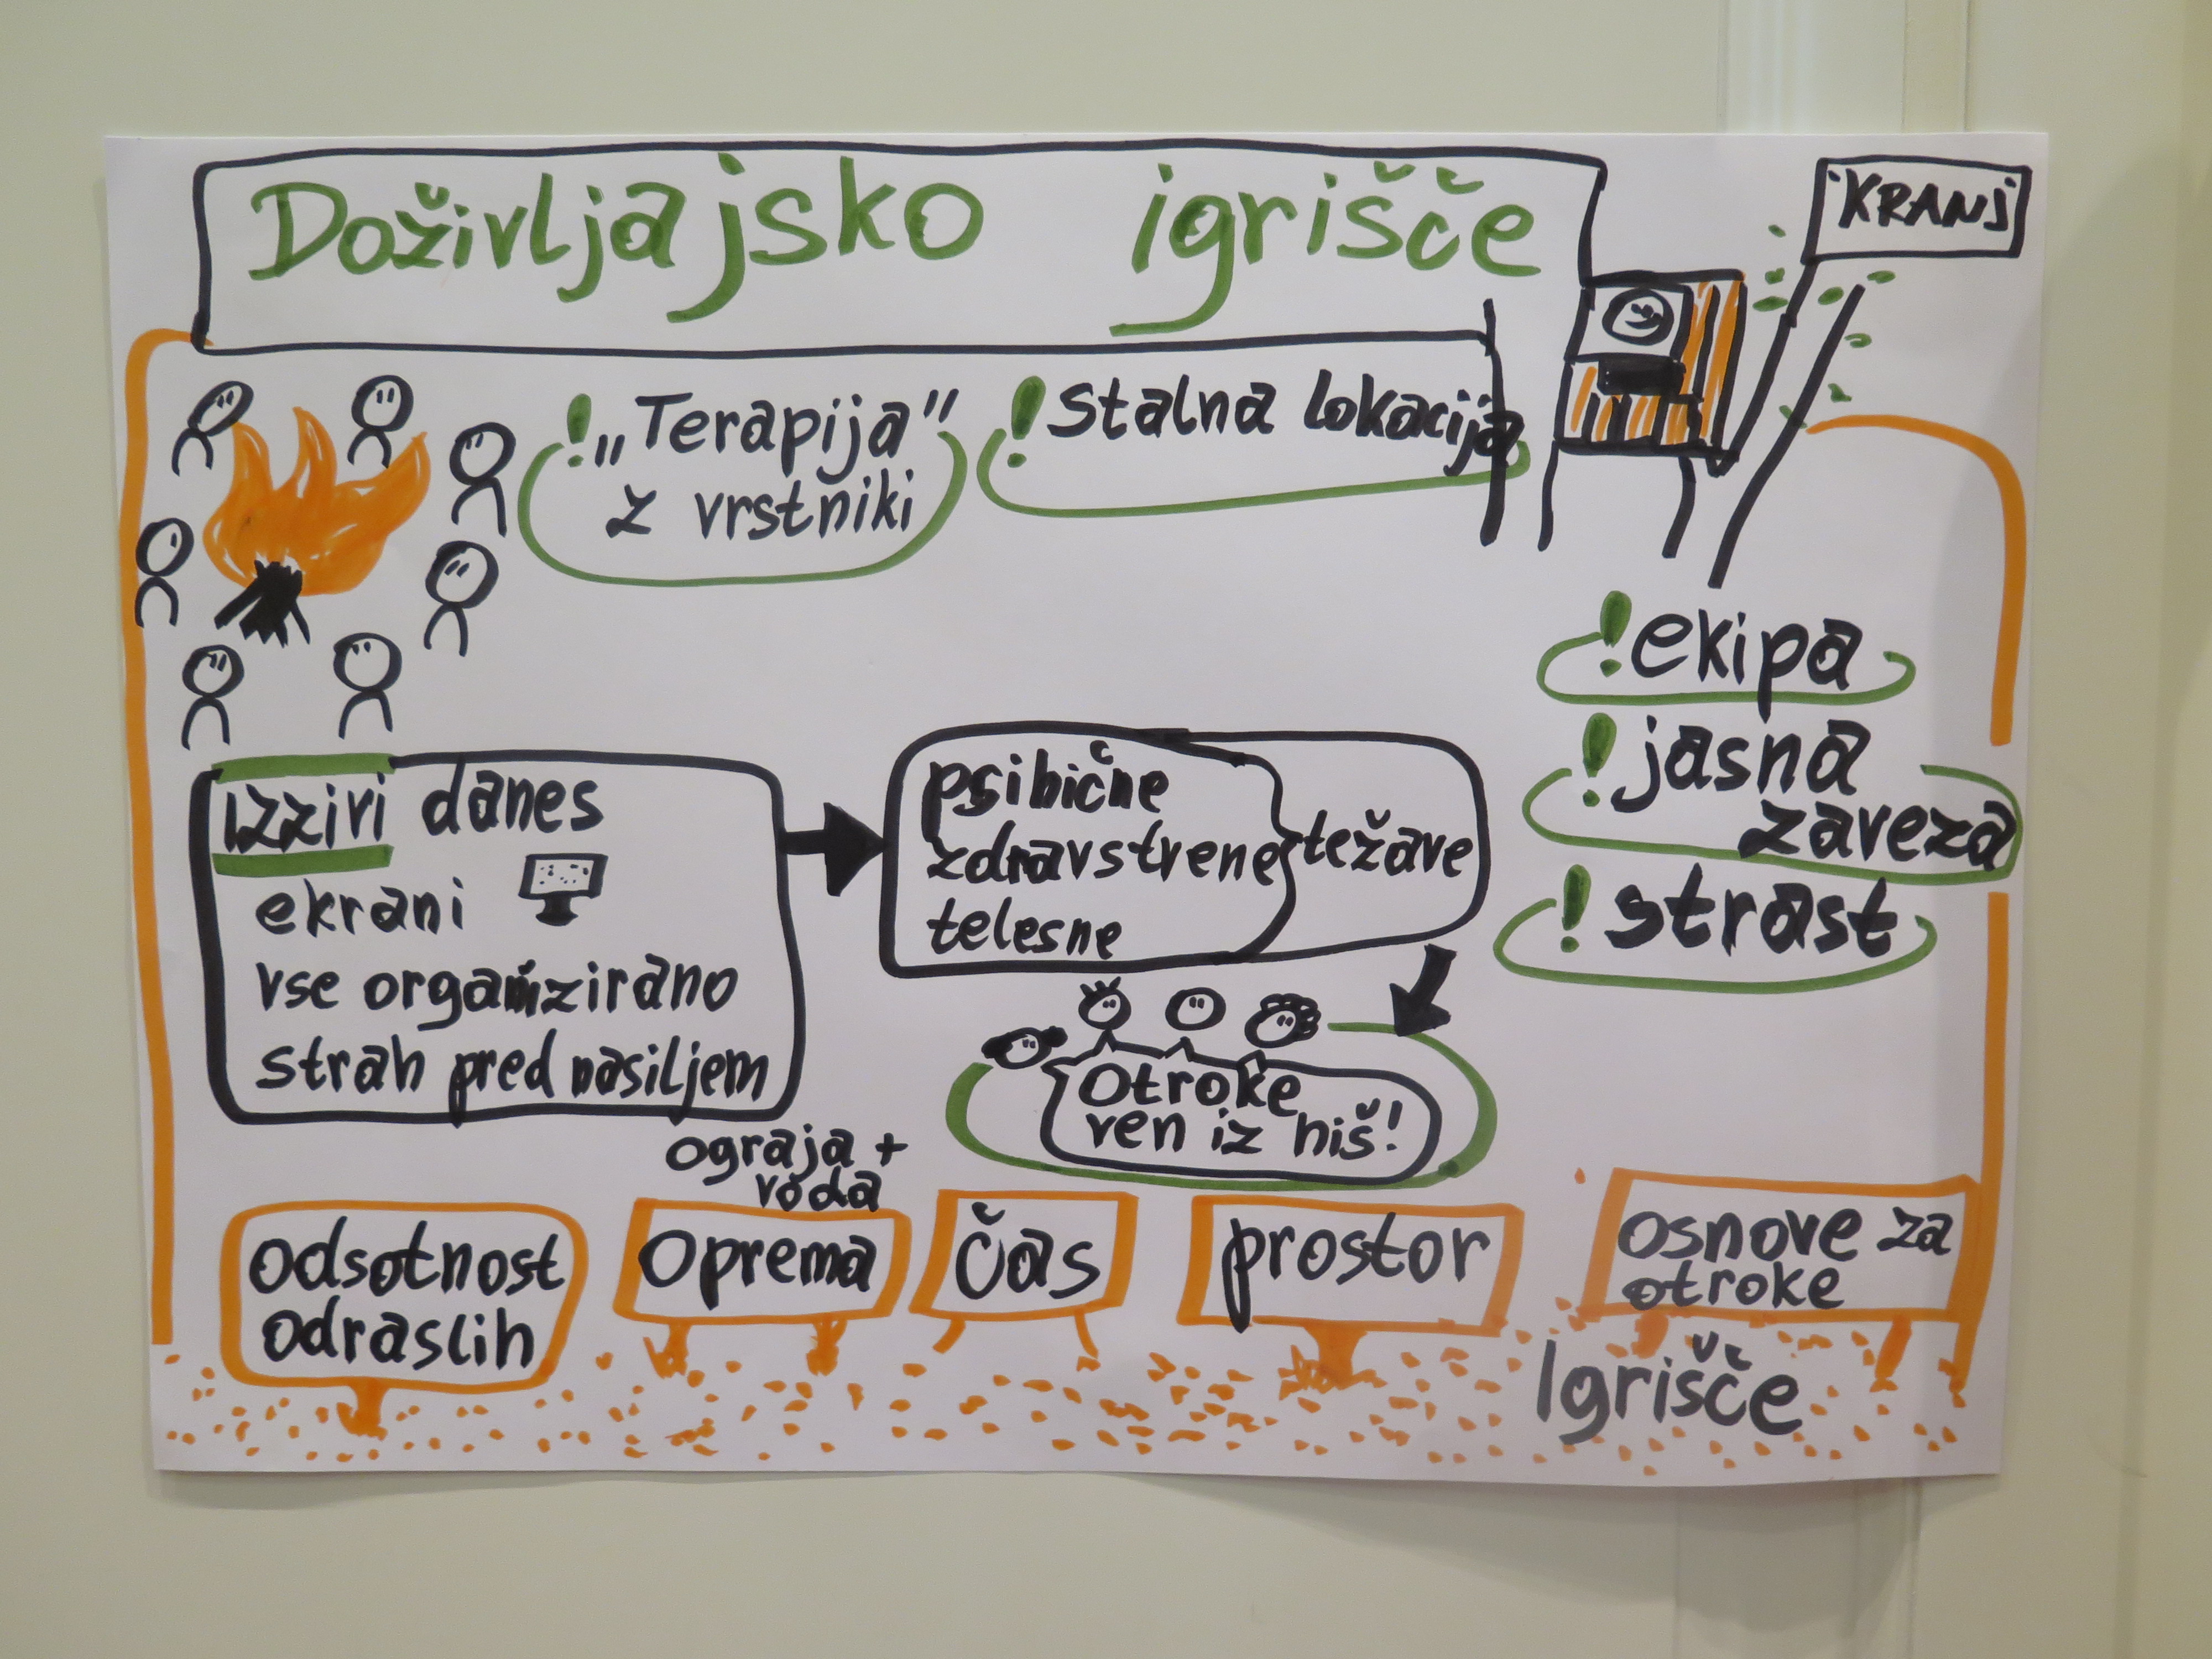 Doživljajsko igrišče
KRANJ
! „Terapija"
z vrstniki
! Stalna lokacija
! ekipa
! jasna
zaveza
! strast
izzivi danes
ekrani
vse organizirano
strah pred nasiljem
psihične
zdravstvene
telesne
težave
Otroke
ven iz hiš!
ograja +
voda
odsotnost
odraslih
Oprema
Čas
prostor
osnove za
otroke
Igrišče